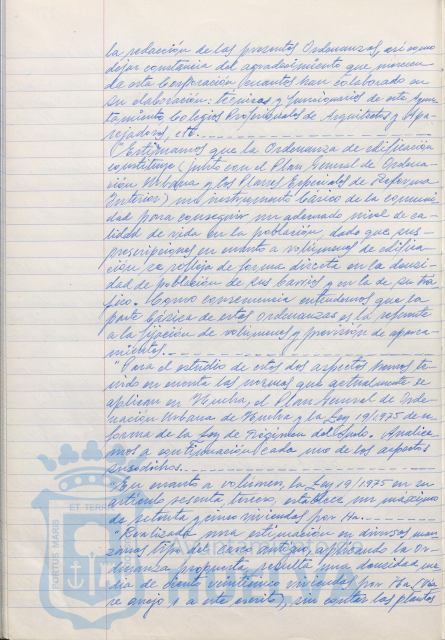 la redacción de las presentes Ordenanzas, así como
dejar constancia del agradecimiento que merecen
de esta Corporación cuantos han colaborado en
su elaboración: técnicos y funcionarios de este Ayun-
tamiento, Colegios Profesionales de Arquitectos y Apa-
rejadores, etc.
"Estimamos que la Ordenanza de edificación
constituye (junto con el Plan General de Ordena-
ción Urbana y los Planes Especiales de Reforma
Interior) un instrumento básico de la comuni-
dad para conseguir un adecuado nivel de ca-
lidad de vida en la población, dado que sus
prescripciones en cuanto a volúmenes de edifica-
ción se refleja de forma directa en la densi-
dad de población de sus barrios y en la de su trá-
fico. Como consecuencia entendemos que la
parte básica de estas Ordenanzas es la referente
a la fijación de volúmenes y previsión de aparca-
mientos.
"Para el estudio de estos dos aspectos hemos te-
nido en cuenta las normas que actualmente se
aplican en Huelva, el Plan General de Orde-
nación Urbana de Huelva y la Ley 19/1975 de re-
forma de la Ley de Régimen del Suelo. Analiza-
mos a continuación cada uno de los aspectos
susodichos.
"En cuanto a volumen, la Ley 19/1975 en su
artículo sesenta tercero, establece un máximo
de setenta y cinco viviendas por Ha.
"Realizada una estimación en diversas man-
zanas tipo del casco antiguo, aplicando la Or-
denanza propuesta, resulta una densidad me-
dia de ciento veinticinco viviendas por Ha (Véa-
se anejo 1 a este escrito), sin contar las plantas
PORTUS MARIS
ET TERRAE